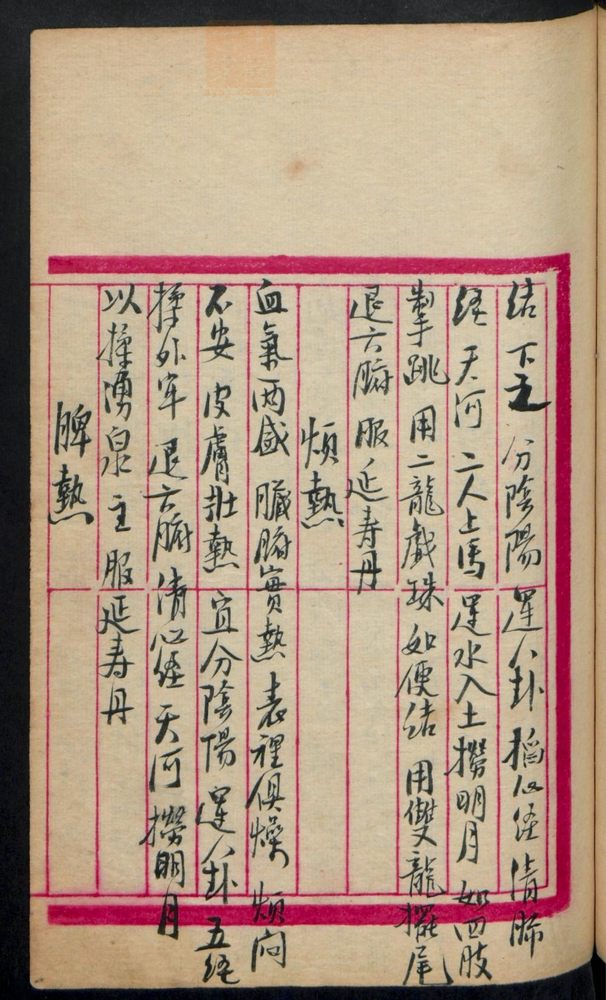 結 下之 分陰陽 運八卦 掐心經 清肺
經 天河 二人上馬 運水入土 撈明月 如四肢
掣跳 用二龍戲珠 如便結 用雙龍擺尾
退六腑 服延寿丹
煩熱
血氣兩盛 臓腑實熱 表裡俱燥 煩悶
不安 皮膚壯熱 宜分陰陽 運八卦 五經
揉外牢 退六腑 清心經 天河 撈明月
以揉湧泉 主服延寿丹
脾熱